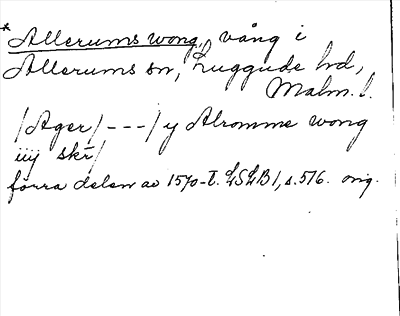 * Allerums wong, vång i
Allerums sn, Luggude hd,
Malm. l.
/Ager/ - - - / y Alromme wong
iiij skr̄/
förra delen av 1570-t. LSLB 1, s. 516. orig.